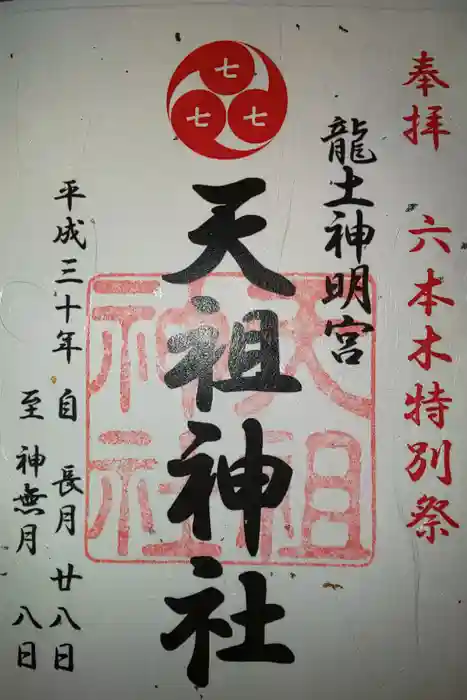 奉拝 六本木特別祭
龍土神明宮
七
七七
天祖神社
天祖神社
平成三十年 自 長月 廿八日
至 神無月 八日